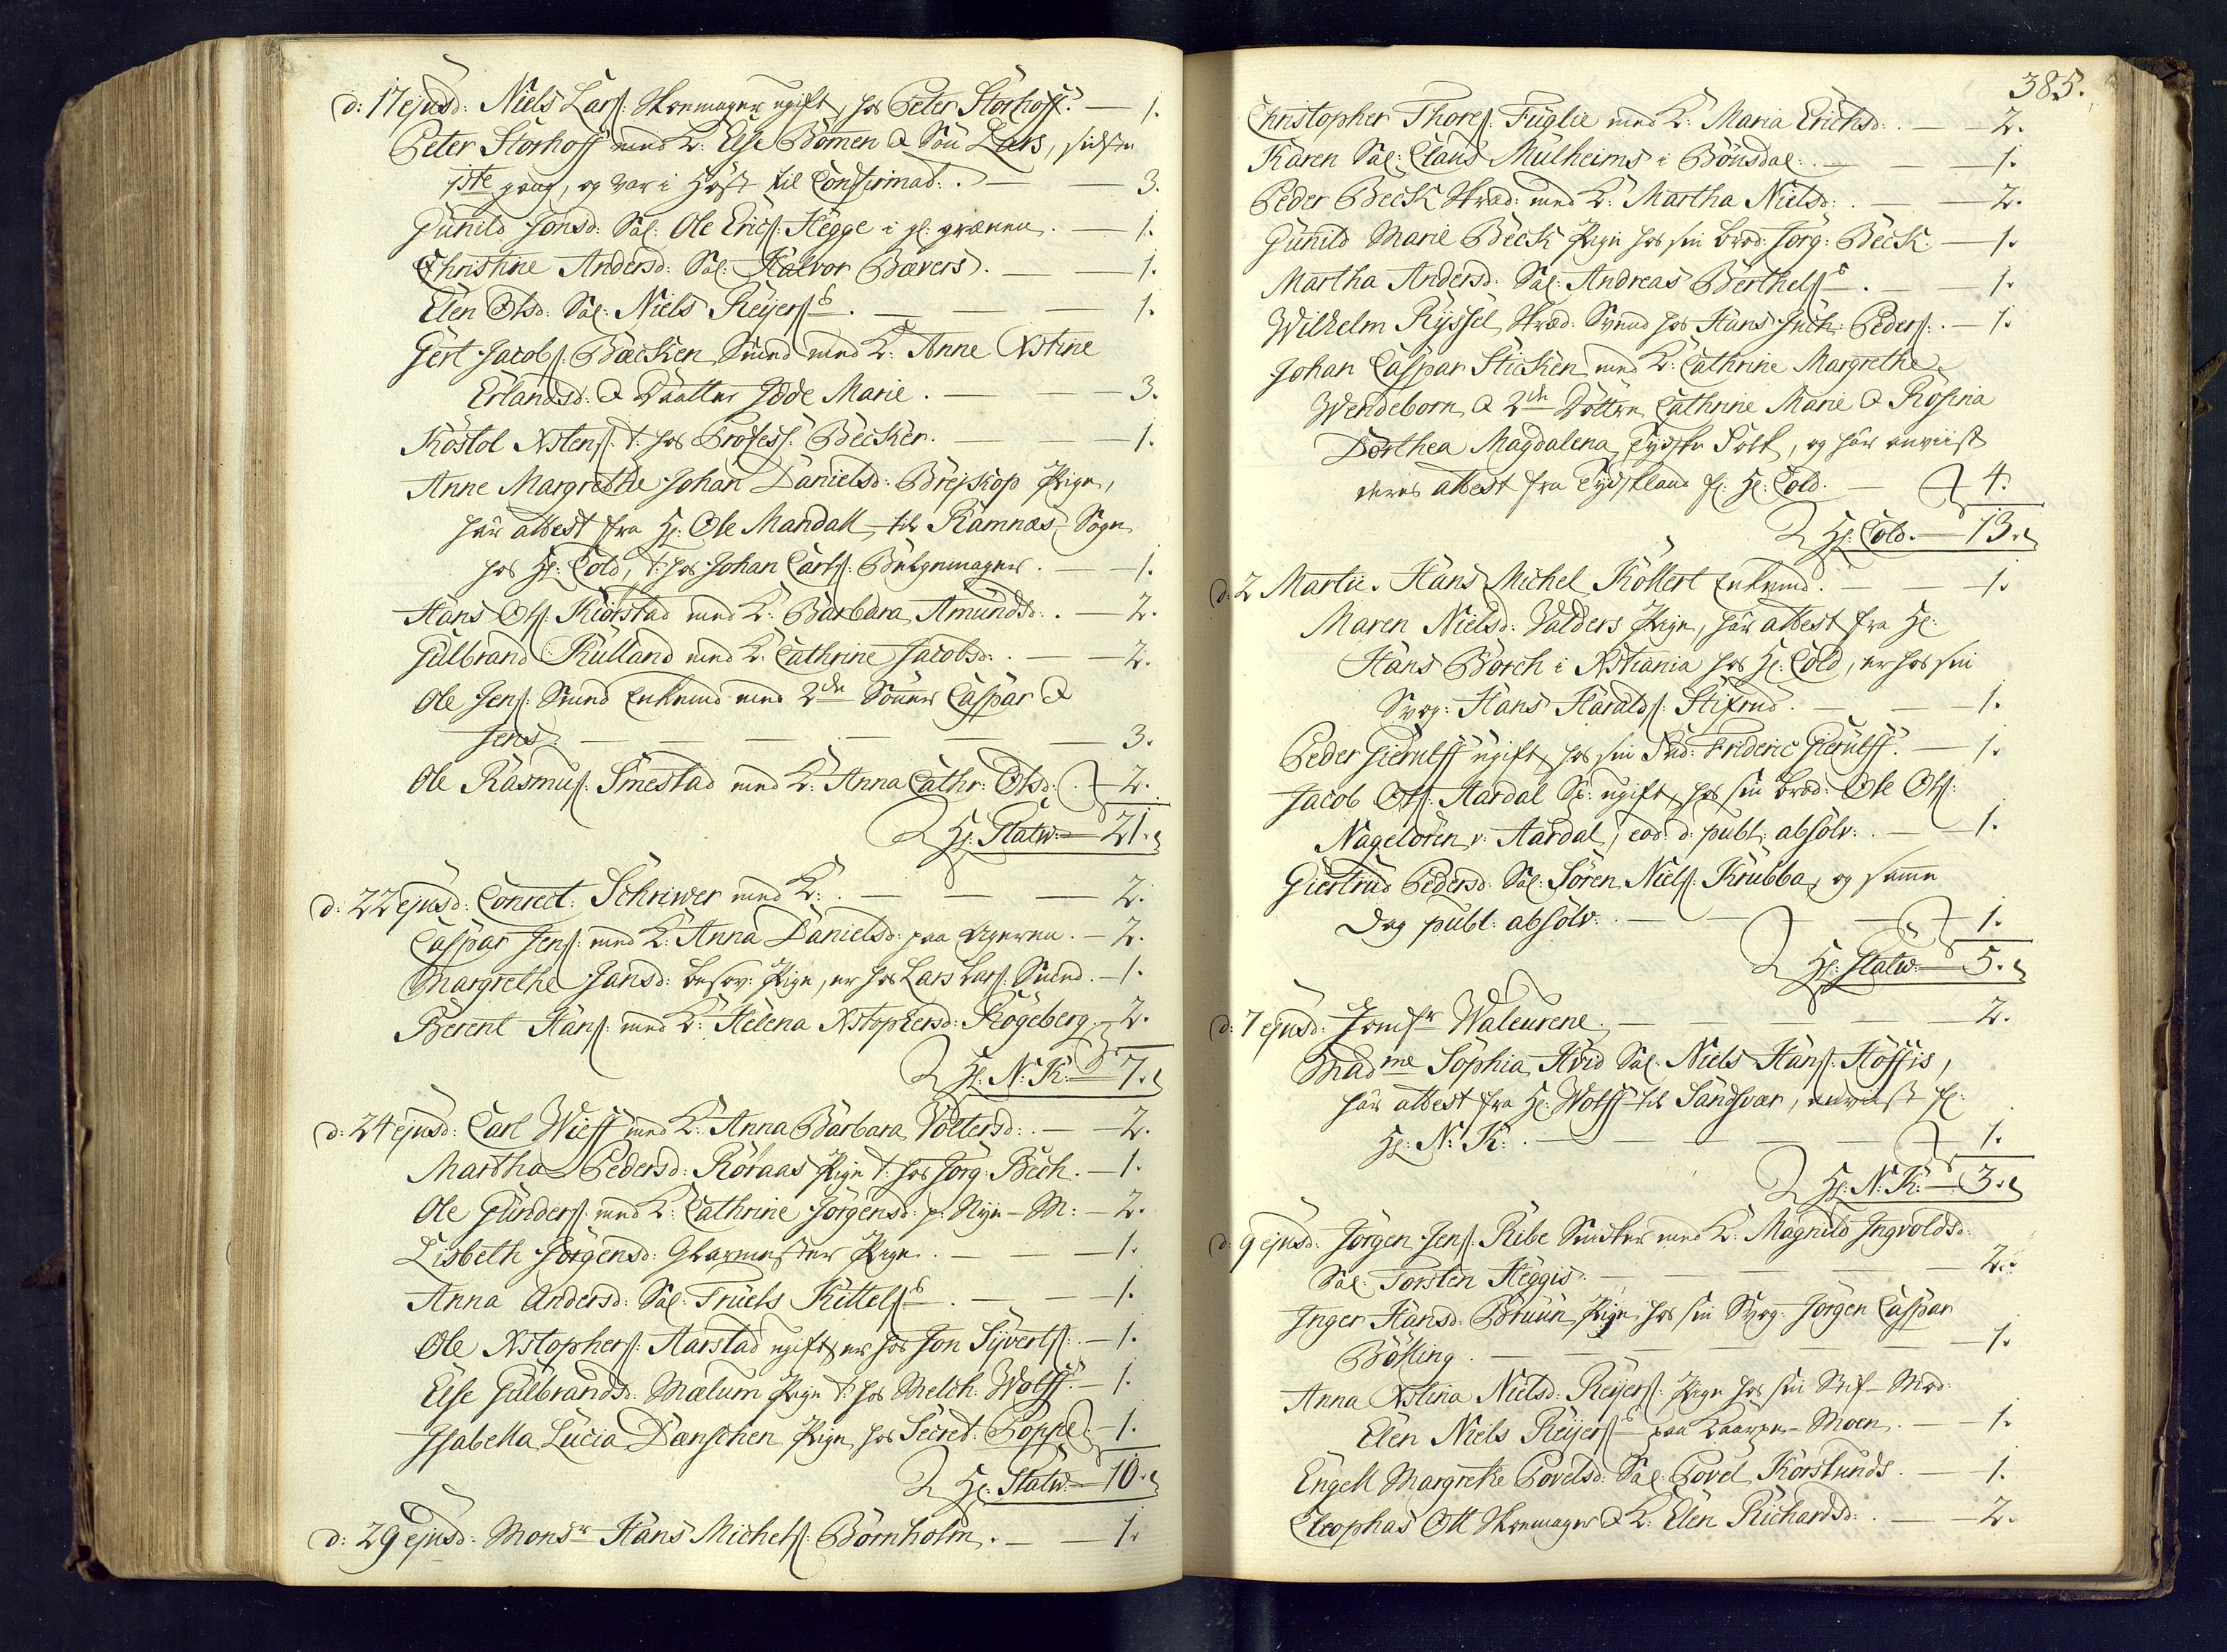 d: 17 ejusd: Niels Larß: Skoemager ugift, hos Peter Storhoff. — 1.
Peter Storhoff med K: Else Bömen & Sön Lars, sidste
1ste gang, og var i Höst til Confirmat: . — — 3.
Gunild Jonsd: Sal: Ole Ericß: Hegge i gl: grænen. — 1.
Christine Andersd: Sal: Halvor Bævers. — — 1.
Elen Olsd: Sal: Niels Reyerß. — — — 1.
Gert Jacobß: Bæcken Smed med K: Anne Xstine
Erlandsd: & Daatter Idde Marie. — — 3.
Kostol Xstenß: t: hos Profess: Becker. — — 1.
Anne Margrethe Johan Danielsd: Brejskop Pige,
har attest fra Hr: Ole Mandall til Ramnæs Sogn
hos Hr: Cold, t: hos Johan Carlß: Belgemager. — 1.
Hans Olß: Kiörstad med K: Barbara Amundsd: . — 2.
Gulbrand Rulland med K: Cathrine Jacobsd: . — 2.
Ole Jenß: Smed Enkemd med 2de Sönner Caspar &
Jens. — — — — — 3.
Ole Rasmuß: Smestad med K: Anna Cathr: Olsd: . 2.
Hr: Statw: — 21.
d: 22 ejusd: Conrect: Schriwer med K: . — — — 2.
Caspar Jenß: med K: Anna Danielsd: paa Ageren. — 2.
Margrethe Jansd: besov: Pige, er hos Lars Larß: Smed. — 1.
Berent Hanß: med K: Helena Xstophersd: Kogeberg. 2.
Hr: N: K: — 7.
d: 24 ejusd: Carl Wieff med K: Anna Barbara Voltersd: . — 2.
Martha Pedersd: Röraas Pige t: hos Jörg: Bech. — 1.
Ole Gunderß: med K: Cathrine Jörgensd: p: Nye-M: — 2.
Lisbeth Jörgensd: Glarmester Pige. — — — 1.
Anna Andersd: Sal: Truels Kittelß. — — 1.
Ole Xstopherß: Aarstad ugift, er hos Jon Syvertß: . — 1.
Else Gulbrandsd: Mælum Pige t: hos Melch: Wolff. — 1.
Isabella Lucia Dænschen Pige hos Secret: Poppe. — 1.
Hr: Statw: — 10.
d: 29 ejusd: Monsr Hans Michelß: Bornholm. — — 1.
385.
Christopher Thoreß: Fuglie med K: Maria Erichsd: . — 2.
Karen Sal: Claus Mulheims i Bönsdal. — — 1.
Peder Beck Skræd: med K: Martha Nielsd: . — — 2.
Gunild Marie Beck Pige hos sin Brod: Jörg: Beck. — 1.
Martha Andersd: Sal: Andreas Berthelß. — — 1.
Wilhelm Ryssel, Skræd: Svend hos Hans Jach: Pederß: . — 1.
Johan Caspar Sticken med K: Cathrine Margrethe
Wendeborn & 2de Döttre Cathrine Marie & Rosina
Dorthea Magdalena, Tydske Folk, og har anviist
deres attest fra Tydskland f: Hr: Cold. — 4.
Hr: Cold. — 13.
d: 2 Martii. Hans Michel Kollert Enkemd. — — 1.
Maren Nielsd: Valders Pige, har attest fra Hr:
Hans Borch i Xstiania hos Hr: Cold, er hos sin
Svog: Hans Haraldß: Stifrud. — — 1.
Peder Gierulff ugift, hos sin Fad: Frideric Gierulff. — 1.
Jacob Olß: Aardal Sp: ugift, hos sin Brod: Ole Olß:
Nagelören v: Aardal, eod: d: publ: absolv: . — 1.
Giertrud Pedersd: Sal: Sören Nielß: Krubba, og samme
Dag publ: absolv. — — — 1.
Hr: Statw: — 5.
d: 7 ejusd: Jomfr Waleurene. — — — — 2.
Madme Sophia Hvid Sal: Niels Hanß: Hoffis,
har attest fra Hr: Wolff til Sandsvær, anviist f:
Hr: N: K: . — — — — 1.
Hr: N: K: — 3.
d: 9 ejusd: Jörgen Jenß: Ribe Snedker med K: Magnild Ingvoldsd:
Sal: Torsten Heggis. — — — — 2.
Inger Hansd: Bruun Pige hos sin Svog: Jörgen Caspar
Bösling. — — — — — 1.
Anna Xstina Nielsd: Reyerß: Pige hos sin Stif-Mod:
Elen Niels Reyerß paa Kaarpe-Moen. — 1.
Engell Margrethe Povelsd: Sal: Povel Korslunds. — 1.
Cleophas Ott Skoemager & K: Elen Richardsd: . — 2.